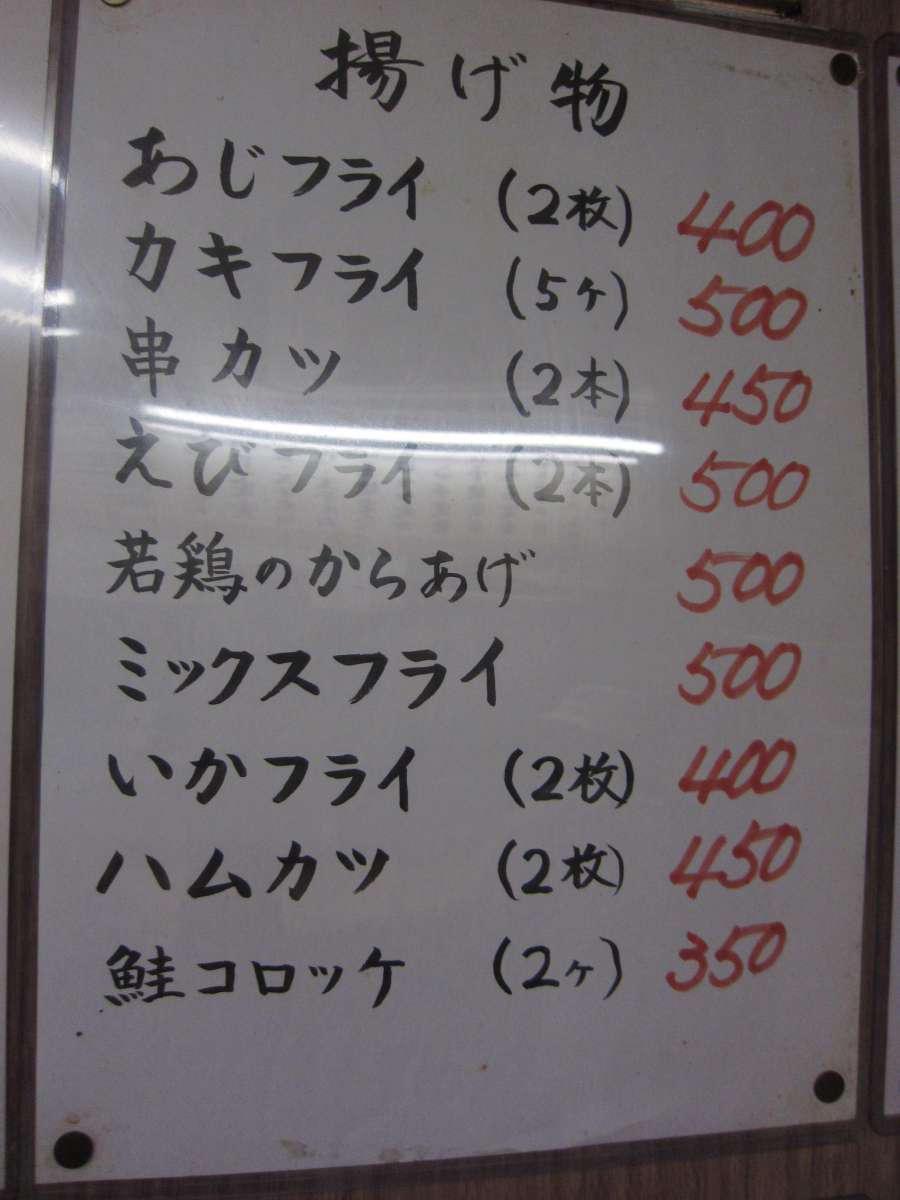 揚げ物
あじフライ (2枚) 400
カキフライ (5ヶ) 500
串カツ (2本) 450
えびフライ (2本) 500
若鶏のからあげ 500
ミックスフライ 500
いかフライ (2枚) 400
ハムカツ (2枚) 450
鮭コロッケ (2ヶ) 350